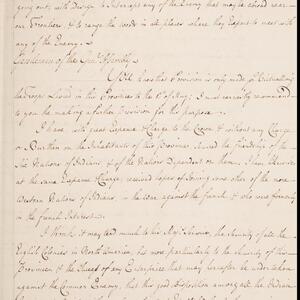 going out, with design to intercept any of the Enemy that may be about near
our Frontiers & to range the woods in all places where they expect to meet with
any of the Enemy.
Gentlemen of the Assembly
You have that Provision is only made of Victualling
the Troops Posted in this Province to the 1st of May; I must earnestly recommend
to you the making a further provision for this purpose.
I have, with great Expence & Charge to the Crown & without any Charge
or Burthen on the Inhabitants of this Province, secured the friendship of the
Six Nations of Indians & of the Nations Dependant on them. I have likewise
at the same Expence & Charge, received hopes of joining some other of the more
Western Nations of Indians in the war against the french & who were formerly
in the french Interest.
I think it may tend much to his Majesty's Service, the security of all the
English Colonies in North America, but more particularly to the security of this
Province & the success of any Enterprise that may hereafter be undertaken
against the Common Enemy, that this good disposition among all the Indian